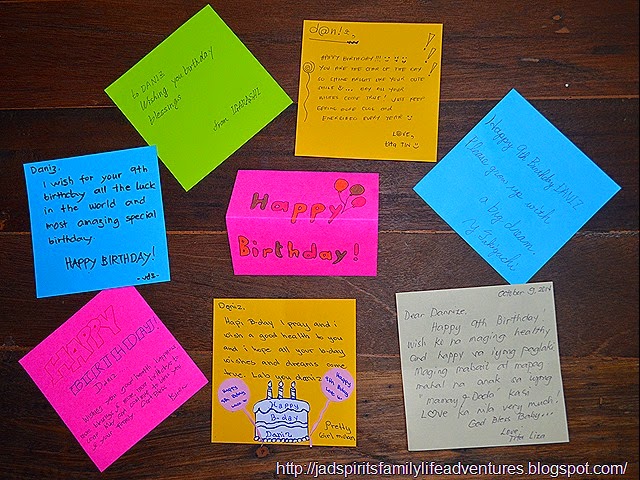 to DANIZ
Wishing you birthday
blessings
from IGARASHI
d@ni!z
HAPPY BIRTHDAY!!!
YOU ARE THE STAR OF THE DAY
SO SHINE BRIGHT LIKE YOUR CUTE
SMILE ... MAY ALL YOUR
WISHES COME TRUE!
EVERY YEAR
LOVE,
tita TIN
Happy 9th Birthday DANIZ
Please grow up with
a big dream.
Daniz.
I wish for your 9th
birthday all the luck
in the world and
most amazing special
birthday
HAPPY BIRTHDAY!
Happy
Birthday!
HAPPY
BIRTHDAY!
DANIZ
Daniz,
Hapi B-day I pray and i
wish a good health to you
and i hope all your b-day
wishes and dreams come
true. Lab you daniz
happy
9th Bday
Happy
9th Bday
Happy
B-day
Daniz
Pretty
Girl
October 9, 2014
Dear Dannize,
Happy 9th Birthday!
Wish ko na maging healthy
and happy sa iyong paglaki.
Maging mabait at mapag
mahal na anak sa iyong
"mamay & Dada" kasi
LOVE ka nila very much!
God Bless Baby...
Love,
Tita Liza
http://jadspiritsfamilylifeadventures.blogspot.com/